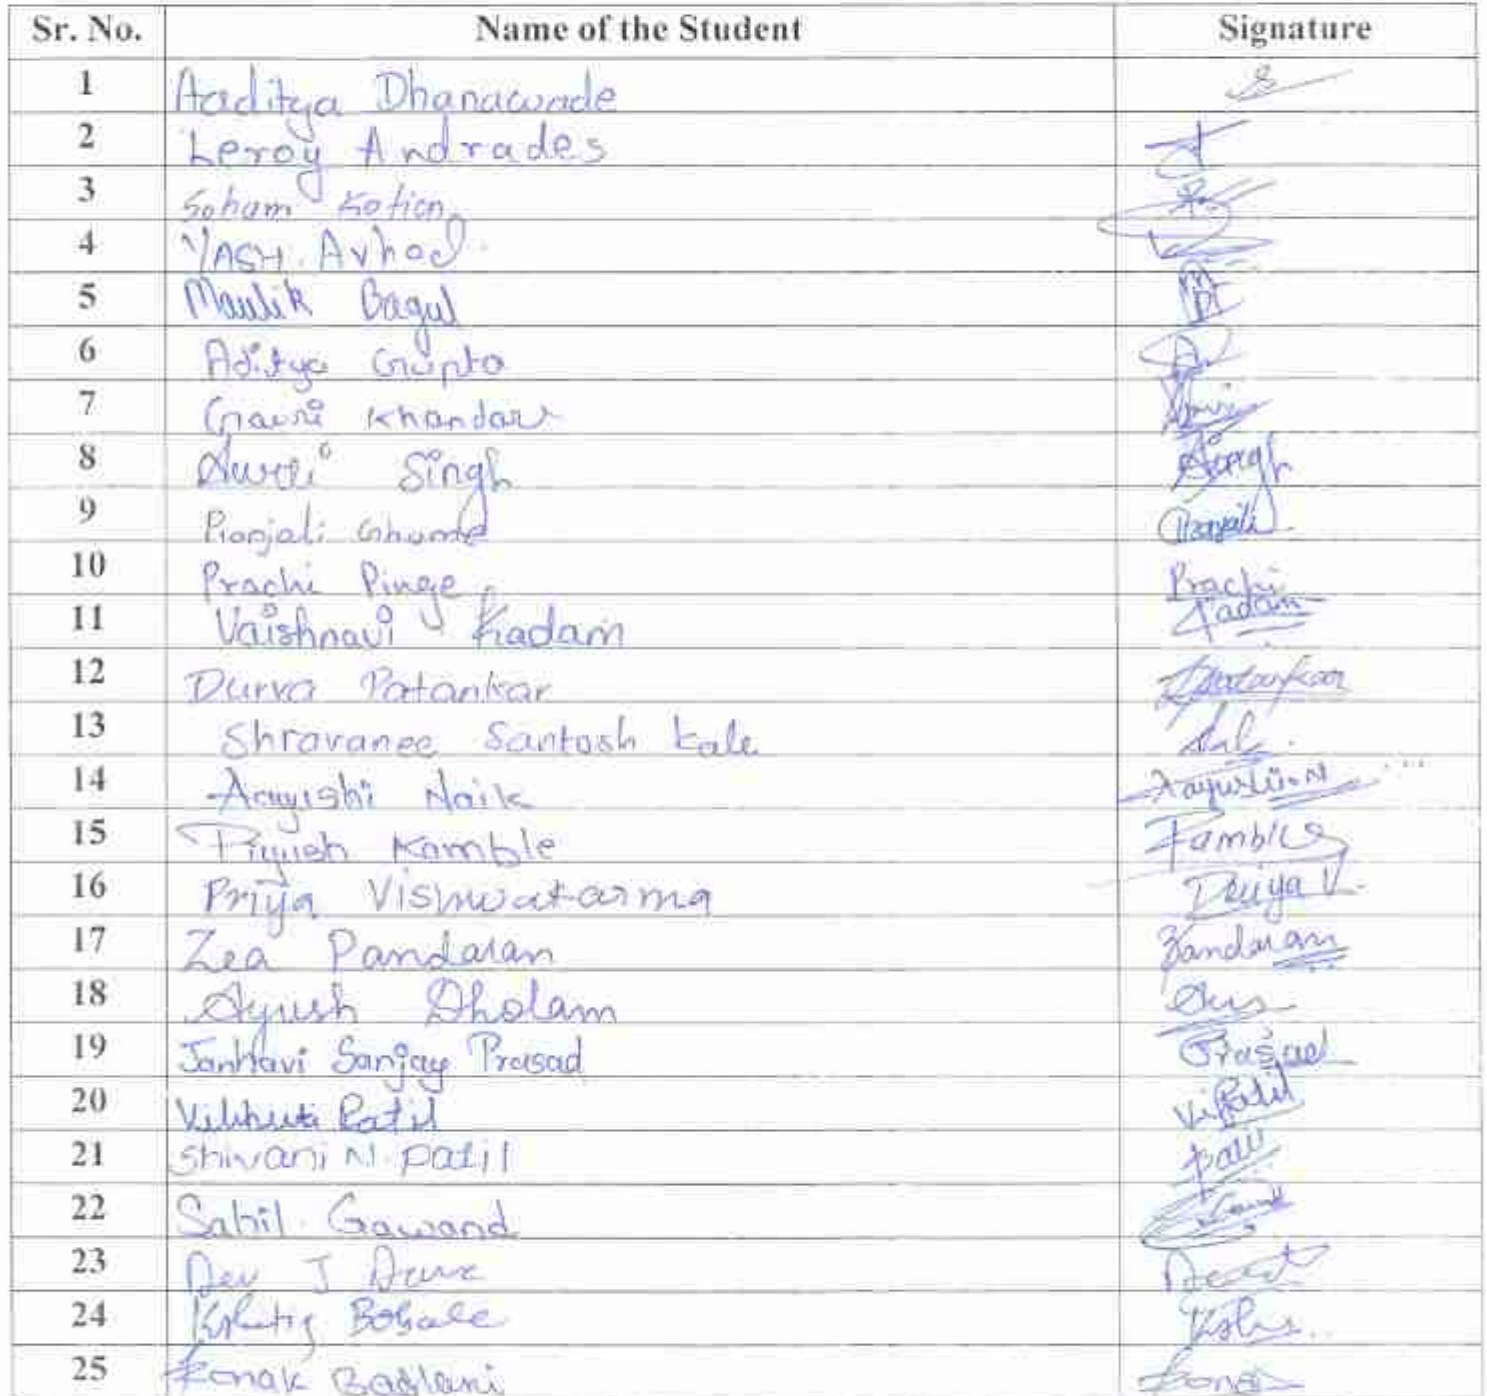 Sr. No. Name of the Student Signature
1 Aaditya Dhanawade
2 Leroy Andrades
3 Soham Kotian
4 YASH. Avhad.
5 Maulik Bagul
6 Aditya Gupta
7 Gauri Khandar
8 Singh Singh
9 Pranjali Ghume Pranjali
10 Prachi Pinge Prachi
11 Vaishnavi Kadam Kadam
12 Durva Patankar Patankar
13 Shravanee Santosh Kale
14 Aayushi Naik Aayushi.N
15 Piyush Kamble Kamble
16 Priya Vishwakarma Priya V.
17 Zea Pandaram Pandaram
18 Ayush Dholam
19 Janhavi Sanjay Prasad Prasad
20 Vibhuti Patil V.Patil
21 Shivani N. Patil Patil
22 Sahil Gawand
23 Dev J
24 Kshitij
25 Ronak